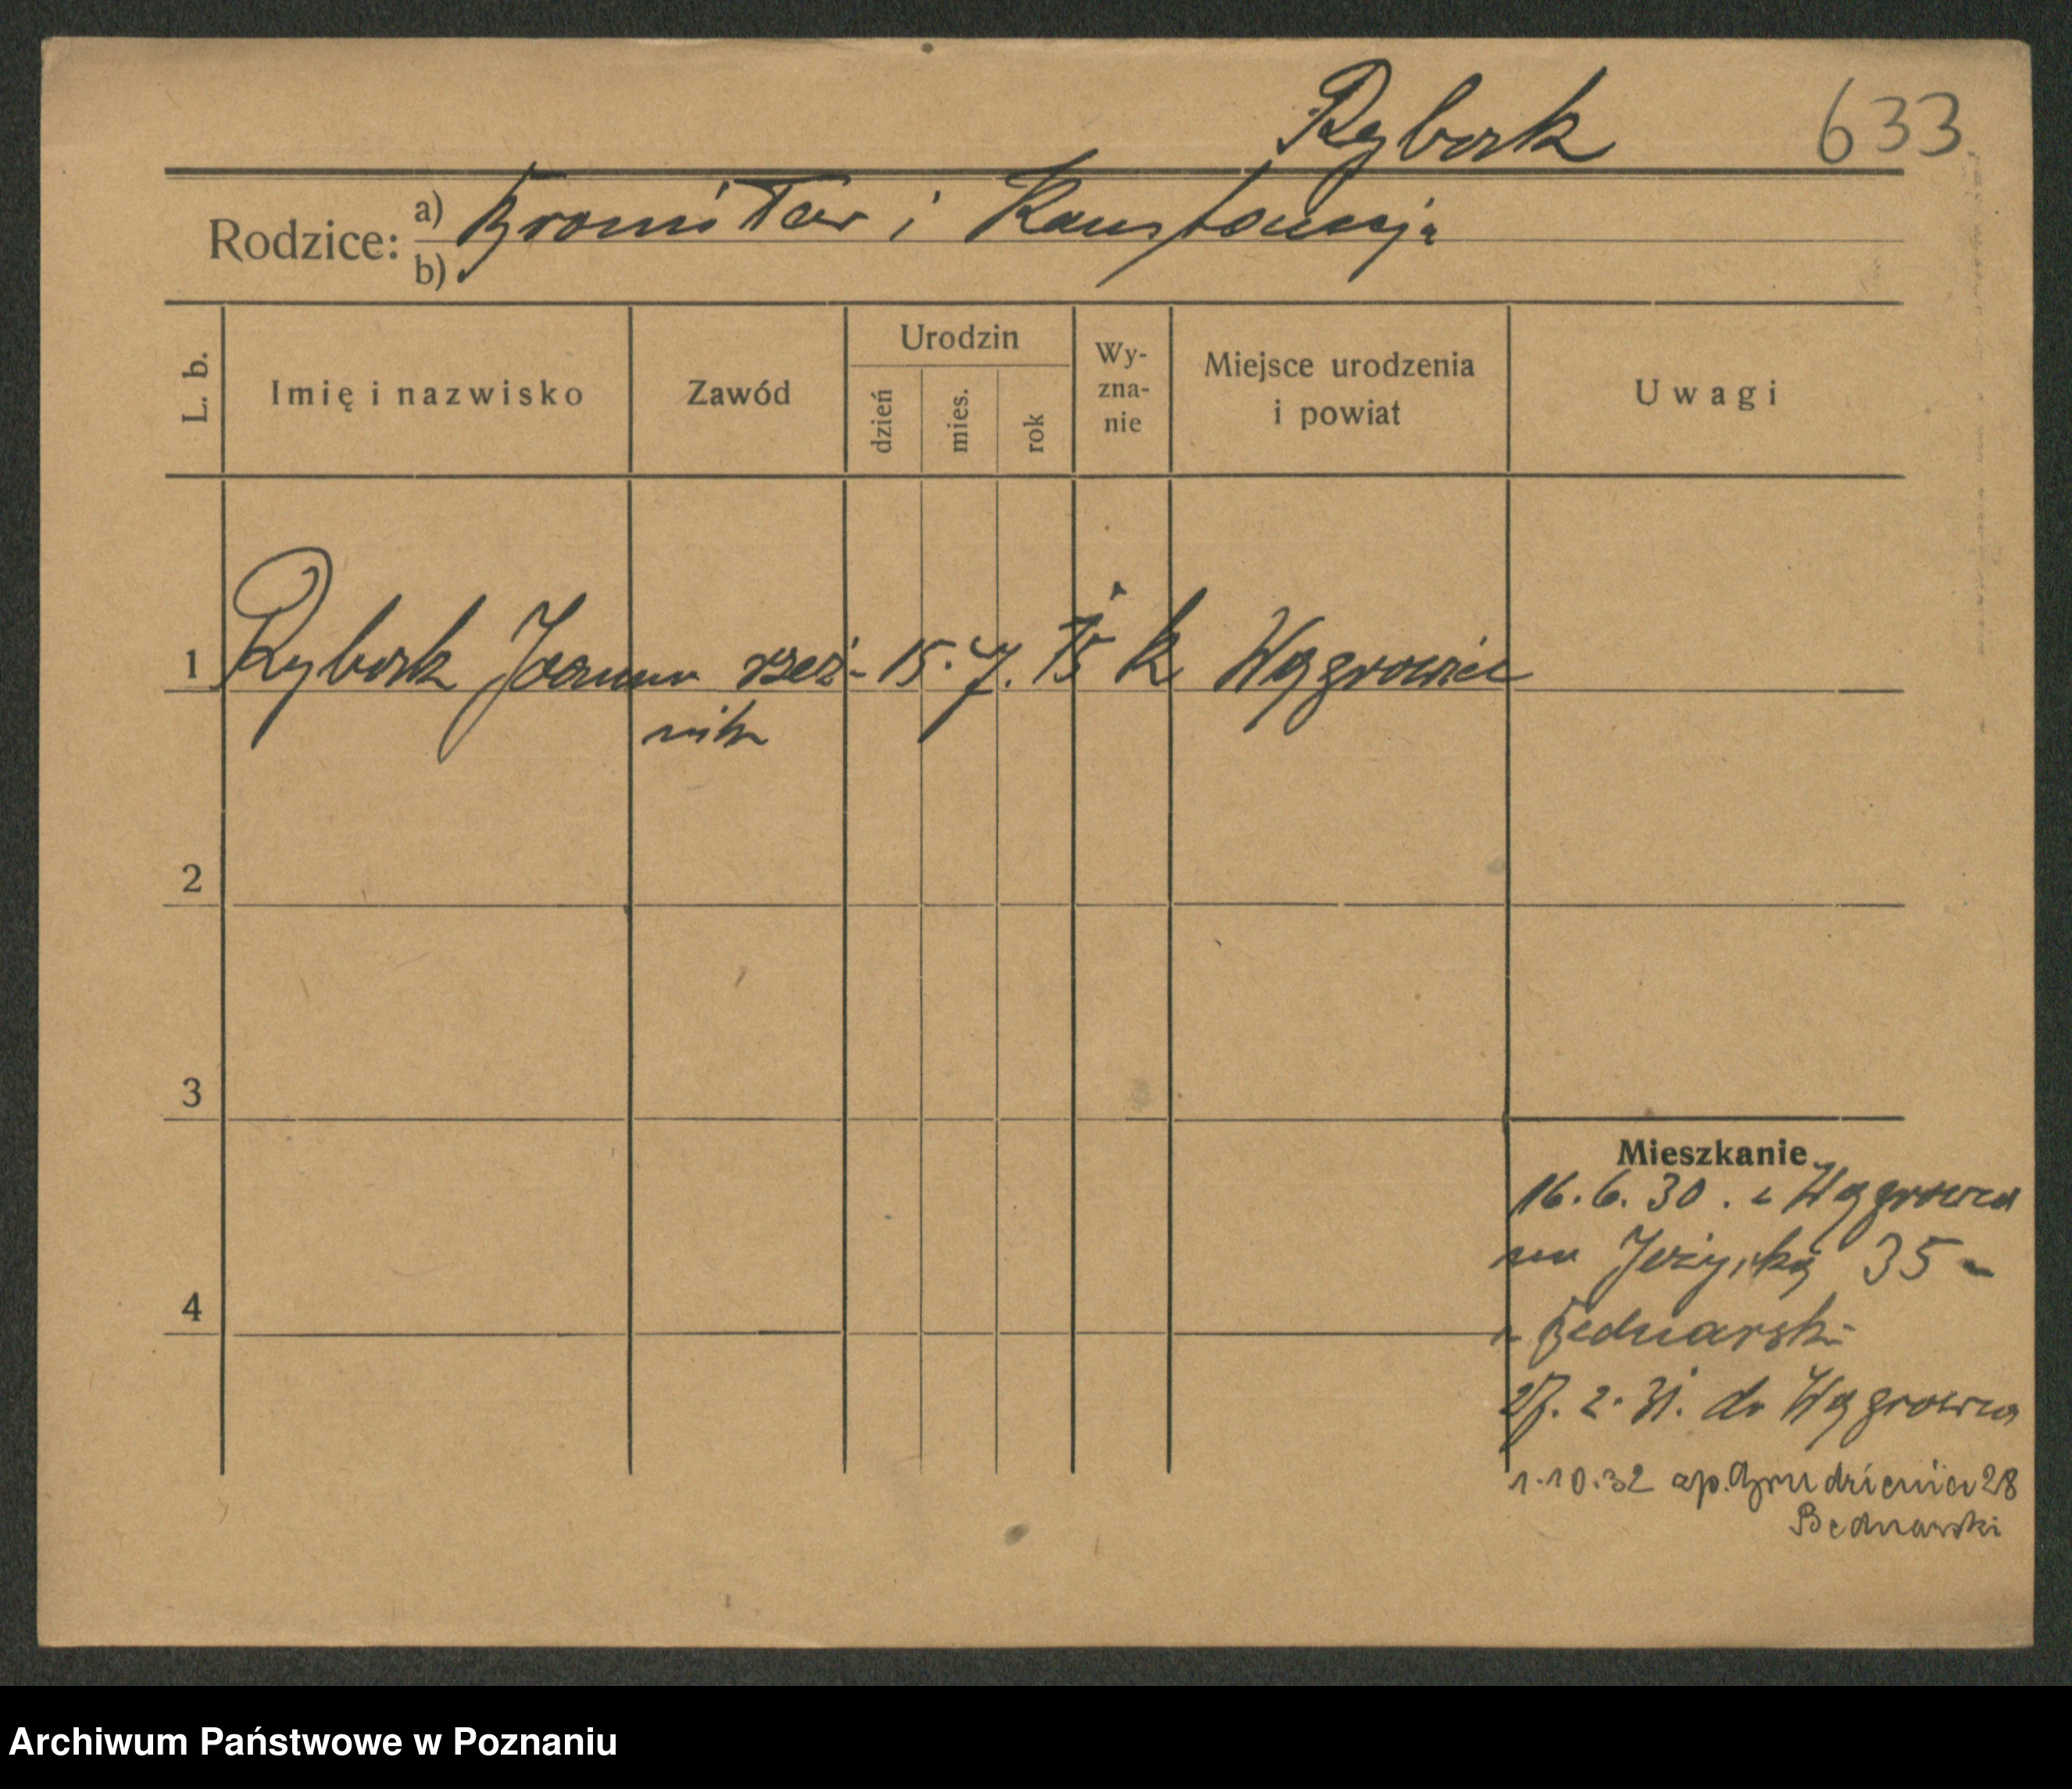 Rybark 633
Rodzice: a) Bronisław i Konstancja
b)
L. b. Imię i nazwisko Zawód Urodzin dzień mies. rok Wy-zna-nie Miejsce urodzenia i powiat Uwagi
1 Rybark Joanna rzeź- 15. 7. 75 k Wągrowiec
nik
2
3
4
Mieszkanie
16. 6. 30. z Wągrowca
na Jeżycką 35 -
u Bednarski
27. 2. 31. do Wągrowca
1.10.32 ap. Grudzieniec 28
Bednarski
Archiwum Państwowe w Poznaniu